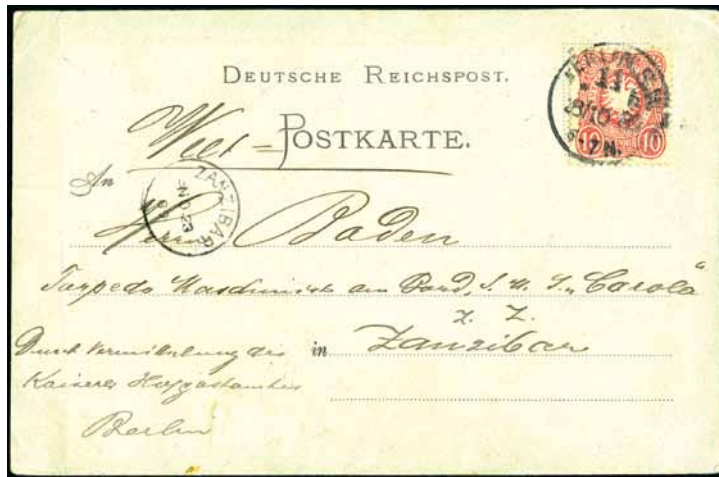 DEUTSCHE REICHSPOST.
Welt-POSTKARTE.
An
ZANZIBAR
Herrn Baden
Torpedo Maschinist an Bord, S. M. S. „Carola"
z. Z.
in Zanzibar
Durch Vermittelung des
Kaiserl. Hofpostamtes
Berlin
BERLIN S.W.
11
7 N.
10 10